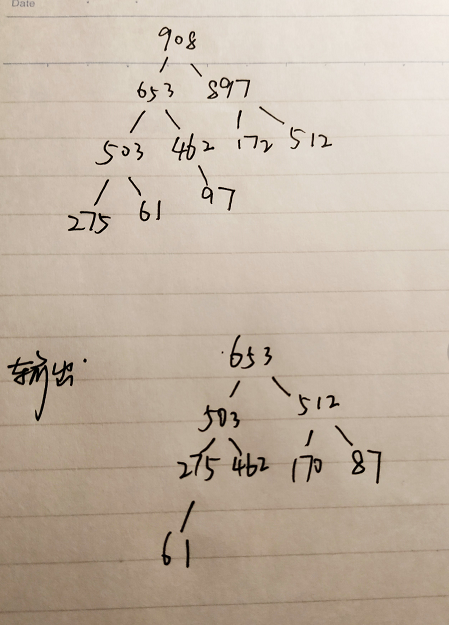 Date
908
653 897
503 462 172 512
275 61 97
输出
653
503 512
275 462 170 87
61